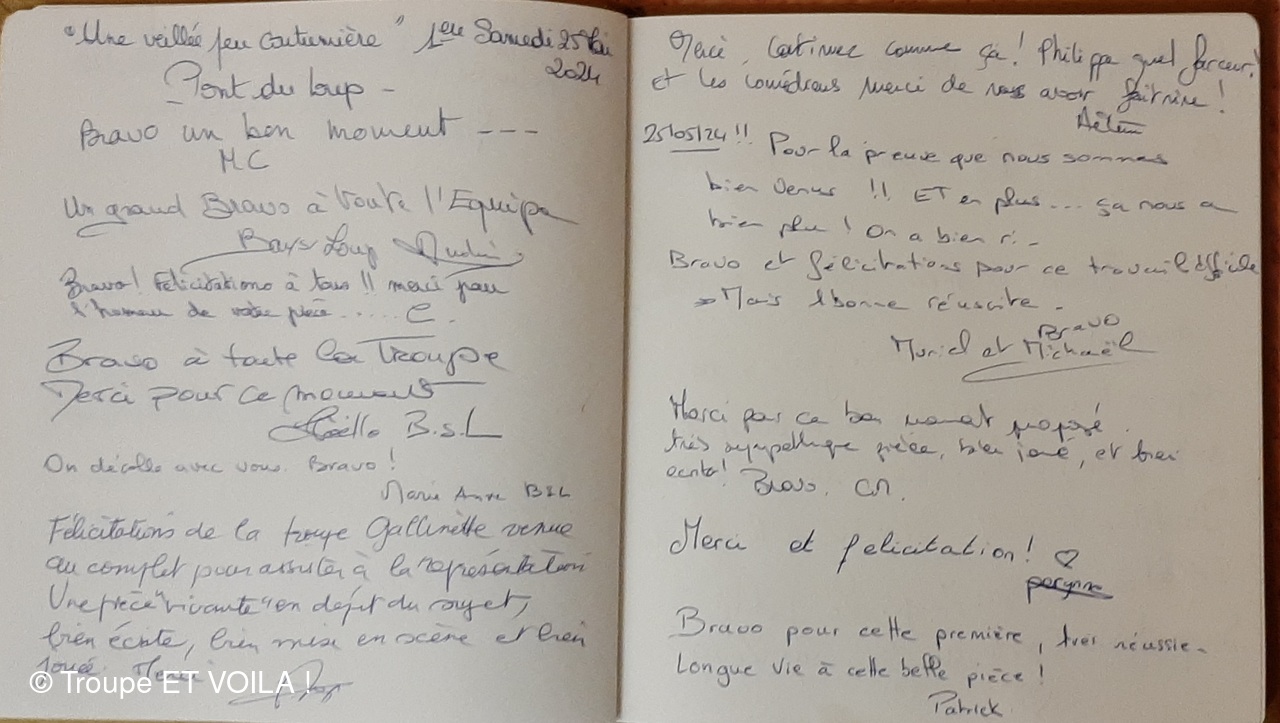 "Une veillée peu coutumière" 1ère Samedi 25 Mai
2024
- Pont du loup -
Bravo un bon moment ---
MC
Un grand Bravo à toute l'Equipe
Bar s/ Loup
Bravo! Félicitations à tous !! merci pour
l'humour de votre pièce ..... C.
Bravo à toute la Troupe
Merci pour ce moment
B.S.L
On décolle avec vous. Bravo !
Marie Anne BSL
Félicitations de la troupe Gallinette venue
au complet pour assister à la représentation
Une pièce "vivante" en dépit du sujet,
bien écrite, bien mise en scène et bien
jouée. Merci
© Troupe ET VOILA !
Merci, Continuez comme ça! Philippe quel farceur!
et les comédiens merci de nous avoir fait rire !
25/05/24 !! Pour la preuve que nous sommes
bien venus !! ET en plus... ça nous a
bien plu ! On a bien ri -
Bravo et félicitations pour ce travail difficile
Mais bonne réussite -
Bravo
Muriel et Michaël
Merci par ce bon moment proposé.
très sympathique pièce, bien joué, et bien
écrite! Bravo. CM.
Merci et felicitation! ♡
perynne
Bravo pour cette première, très réussie -
Longue vie à cette belle pièce !
Patrick